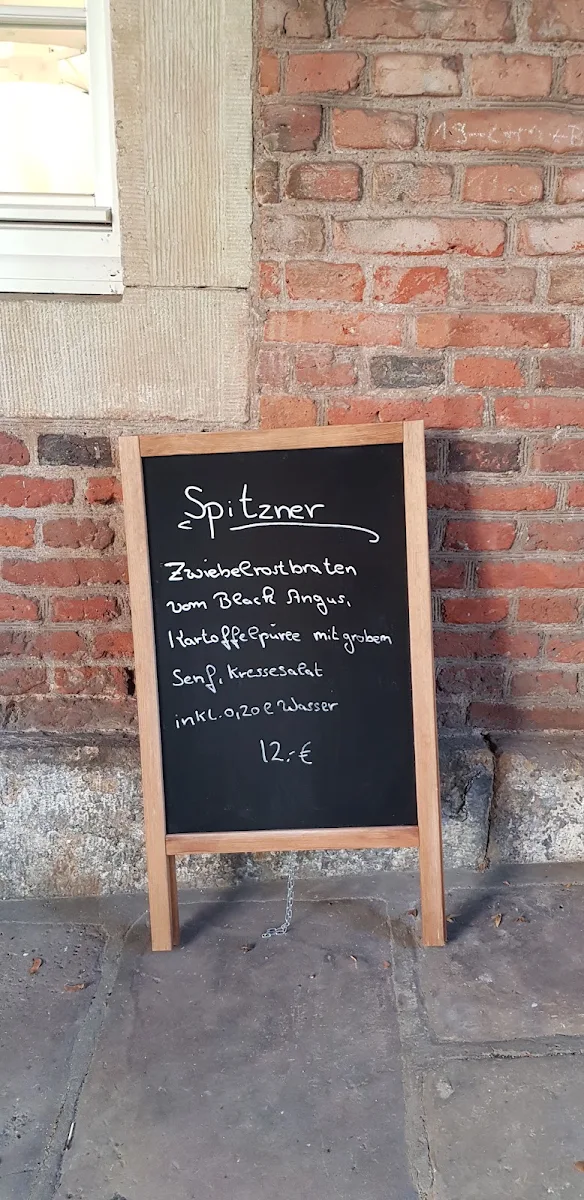 Spitzner
Zwiebelrostbraten
vom Black Angus,
Kartoffelpüree mit grobem
Senf, Kressesalat
inkl. 0,20 l Wasser
12.-€